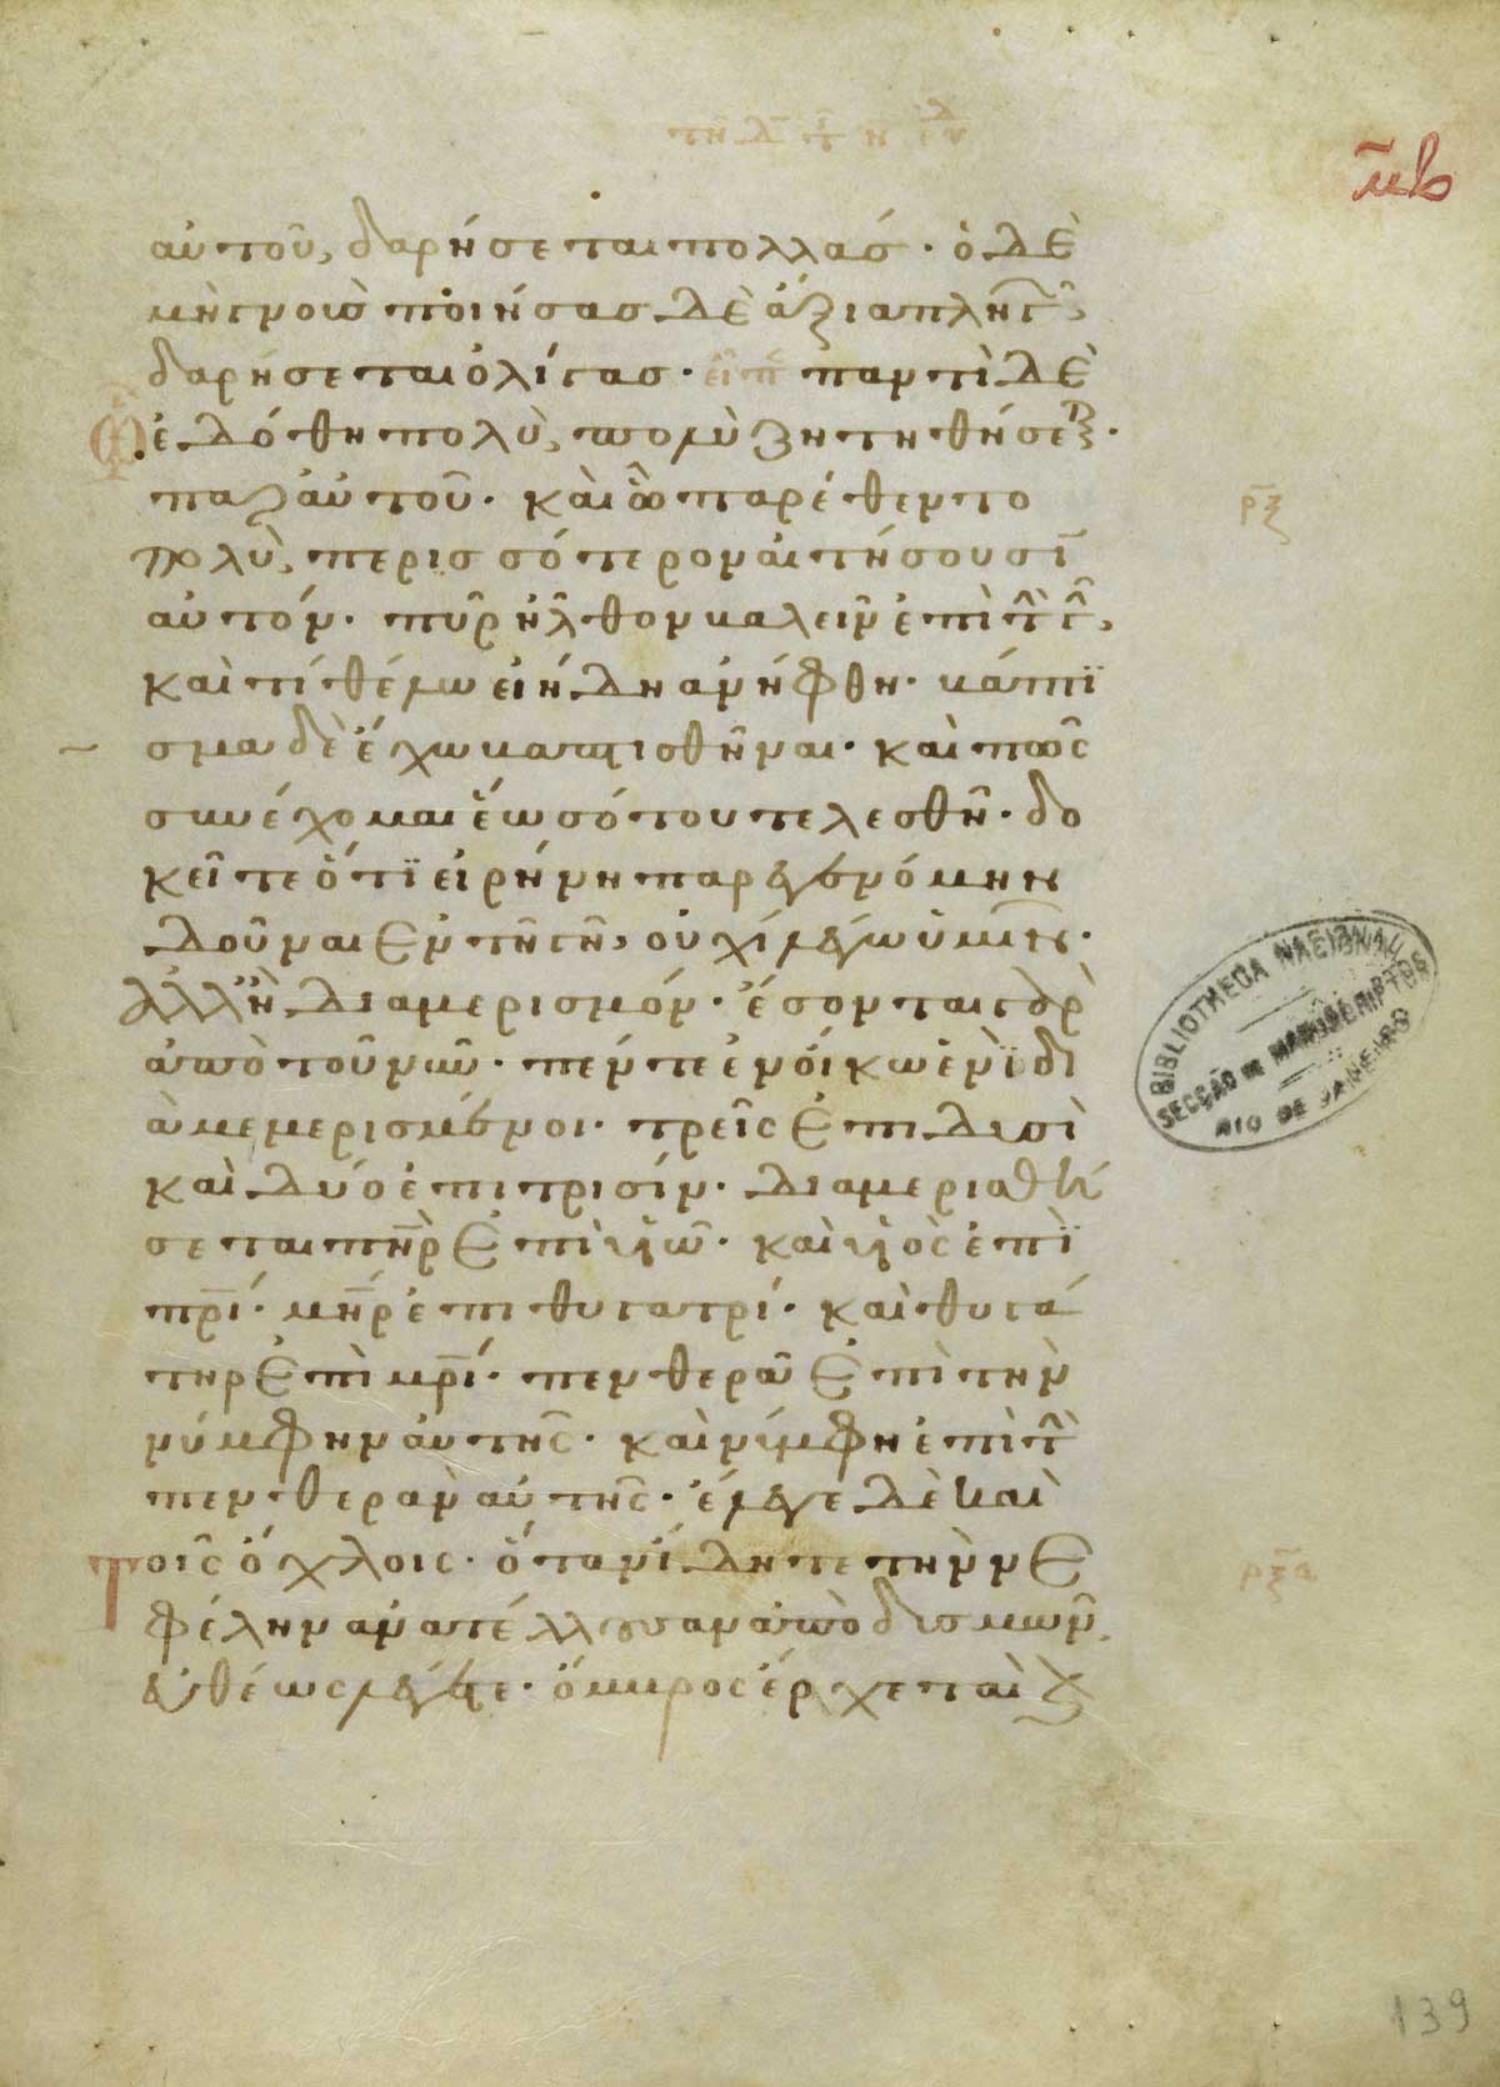 μβ
αὐτοῦ, δαρήσεται πολλάσ· ὁ δὲ
μὴ γνοὺσ ποιήσασ δὲ ἄξια πληγῶ,
δαρήσεται ὀλίγασ· παντὶ δὲ
ὧ ἐδόθη πολὺ, πολὺ ζητηθήσεται·
παρ αὐτοῦ· καὶ ὧ παρέθεντο
πολὺ, περισσότερον αἰτήσουσϊ
αὐτόν· πῦρ ἦλθον βαλεῖν ἐπὶ τ̂ γ̂,
καὶ τί θέλω εἰ ἤδη ἀνήφθη· βάπτϊ
σμα δὲ ἔχω βαπτισθῆναι· καὶ πῶς
συνέχομαι ἕωσ ὅτου τελεσθῆ· δο
κεῖτε ὅτϊ εἰρήνη παρεγενόμην
δοῦναι ἐν τῆ γῆ, οὐχί λέγω ὑμῖν·
ἀλλ ἢ διαμερισμόν· ἔσονται γὰρ
ἀπὸ τοῦ νῦν· πέντε ἐν οἴκω ἑνὶ δι
αμεμερισμένοι· τρεῖς ἐπι δυσὶ
καὶ δύο ἐπι τρισίν· διαμερισθή
σεται πη̅ρ ἐπὶ υἱῶ· καὶ υἱὸς ἐπῒ
πρ̅ί· μη̅ρ ἐπι θυγατρί· καὶ θυγά
τηρ ἐπὶ μρ̅ί· πενθερᾶ ἐπὶ τὴν
νύμφην αὐτῆς· καὶ νύμφη ἐπὶ τ̂
πενθερὰν αὐτῆς· ἔλεγε δὲ καὶ
τοῖς ὄχλοις· ὅταν ἴδητε τὴν νε
φέλην ἀνατέλλουσαν ἀπὸ δυσμῶν,
εὐθέως λέγετε· ὄμβρος ἔρχεται κ̀
ρξ
ρξα
BIBLIOTHECA NACIONAL
SECÇÃO DE MANUSCRIPTOS
RIO DE JANEIRO
139